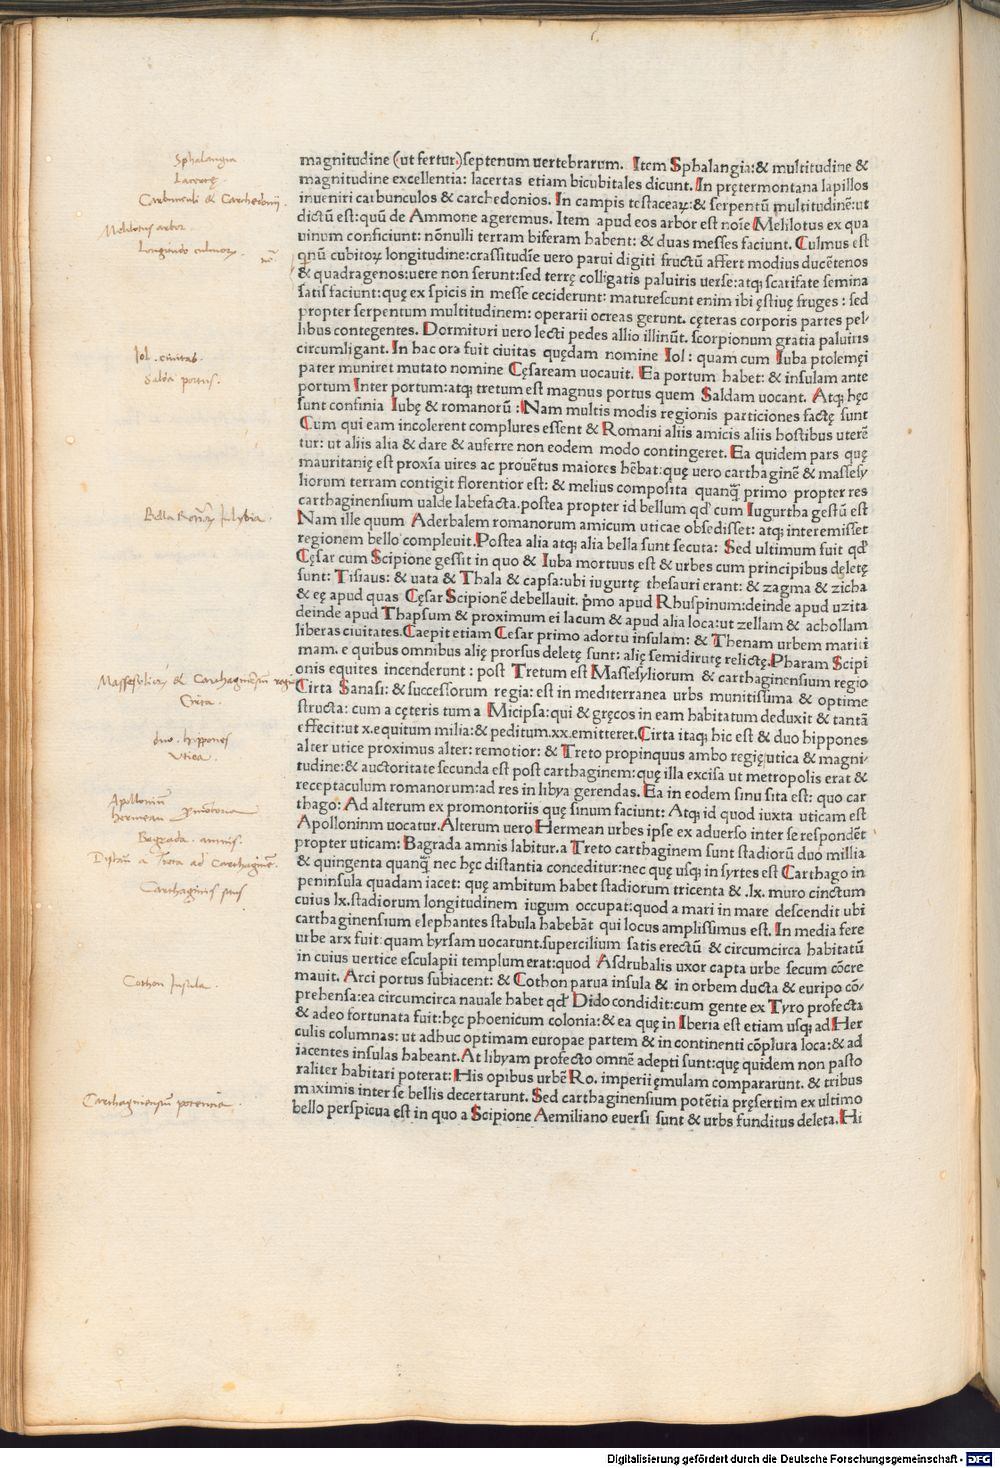 Sphalangia
Lacertę.
Carbunculi & Carchedonij.
Melilotus arbor.
Longitudo culmorum.
Iol. civitas.
Salda portus.
Bella Romanorum
Massesylior & Carthaginensiū regio
Cirta.
duo. hippones
Vtica.
Apollonium
hermeum promōtoria
Bagrada. amnis.
Distan a Treta ad Carthaginē.
Carthaginis
Cothon Insula.
Carthaginensium potencia
magnitudine (ut fertur.)septenum uertebrarum. Item Sphalangia:& multitudine &
magnitudine excellentia: lacertas etiam bicubitales dicunt. In prętermontana lapillos
inueniri carbunculos & carchedonios. In campis testaceaꝝ:& serpentū multitudinē:ut
dictū est:quū de Ammone ageremus. Item apud eos arbor est noīe Melilotus ex qua
uinum conficiunt: nōnulli terram biferam habent: & duas messes faciunt. Culmus est
qnū cubitoꝝ longitudine:crassitudīe uero parui digiti fructū affert modius ducētenos
& quadragenos:uere non serunt:sed terrę colligatis paluiris uerse:atqꝫ scarifate semina
satis faciunt:quę ex spicis in messe ceciderunt: maturescunt enim ibi ęstiuę fruges : sed
propter serpentum multitudinem: operarii ocreas gerunt. cęteras corporis partes pel-
libus contegentes. Dormituri uero lecti pedes allio illinūt. scorpionum gratia paluiris
circumligant. In hac ora fuit ciuitas quędam nomine Iol: quam cum Iuba ptolemęi
pater muniret mutato nomine Cęsaream uocauit. Ea portum habet: & insulam ante
portum Inter portum:atqꝫ tretum est magnus portus quem Saldam uocant. Atqꝫ hęc
sunt confinia Iubę & romanorū : Nam multis modis regionis particiones factę sunt
Cum qui eam incolerent complures essent & Romani aliis amicis aliis hostibus uterē
tur: ut aliis alia & dare & auferre non eodem modo contingeret. Ea quidem pars quę
mauritanię est proxīa uires ac prouētus maiores hēbat:quę uero carthaginē & massesy
liorum terram contigit florentior est: & melius composita quanq̄ primo propter res
carthaginensium ualde labefacta.postea propter id bellum qd' cum Iugurtha gestū est
Nam ille quum Aderbalem romanorum amicum uticae obsedisset: atqꝫ interemisset
regionem bello compleuit.Postea alia atqꝫ alia bella sunt secuta: Sed ultimum fuit qd'
Cęsar cum Scipione gessit in quo & Iuba mortuus est & urbes cum principibus deletę
sunt: Tisiaus: & uata & Thala & capsa:ubi iugurtę thesauri erant: & zagma & zicha
& eę apud quas Cęsar Scipionē debellauit. p̄mo apud Rhuspinum:deinde apud uzita
deinde apud Thapsum & proximum ei lacum & apud alia loca:ut zellam & achollam
liberas ciuitates.Caepit etiam Cesar primo adortu insulam: & Thenam urbem mariti
mam. e quibus omnibus alię prorsus deletę sunt: alię semidirutę relictę.Pharam Scipi
onis equites incenderunt : post Tretum est Massesyliorum & carthaginensium regio
Cirta Sanasi: & successorum regia: est in mediterranea urbs munitissima & optime
structa: cum a cęteris tum a Micipsa:qui & gręcos in eam habitatum deduxit & tantā
effecit:ut x.equitum milia:& peditum.xx.emitteret.Cirta itaqꝫ hic est & duo hippones
alter utice proximus alter: remotior: & Treto propinquus ambo regię utica & magni-
tudine:& auctoritate secunda est post carthaginem:quę illa excisa ut metropolis erat &
receptaculum romanorum:ad res in libya gerendas. Ea in eodem sinu sita est: quo car
thago: Ad alterum ex promontoriis quę sinum faciunt: Atqꝫ id quod iuxta uticam est
Apolloninm uocatur.Alterum uero Hermean urbes ipse ex aduerso inter se respondēt
propter uticam: Bagrada amnis labitur.a Treto carthaginem sunt stadiorū duo millia
& quingenta quanq̄ nec hęc distantia conceditur:nec quę usqꝫ in syrtes est Carthago in
peninsula quadam iacet: quę ambitum habet stadiorum tricenta & .lx. muro cinctum
cuius lx.stadiorum longitudinem iugum occupat:quod a mari in mare descendit ubi
carthaginensium elephantes stabula habebāt qui locus amplissimus est. In media fere
urbe arx fuit:quam byrsam uocarunt.supercilium satis erectū & circumcirca habitatū
in cuius uertice esculapii templum erat:quod Asdrubalis uxor capta urbe secum cōcre
mauit. Arci portus subiacent: & Cothon parua insula & in orbem ducta & euripo cō-
prehensa:ea circumcirca nauale habet qd' Dido condidit:cum gente ex Tyro profecta
& adeo fortunata fuit:hęc phoenicum colonia:& ea quę in Iberia est etiam usqꝫ ad Her
culis columnas: ut adhuc optimam europae partem & in continenti cōplura loca:& ad
iacentes insulas habeant.At libyam profecto omnē adepti sunt:quę quidem non pasto
raliter habitari poterat: His opibus urbē Ro. imperii ęmulam compararunt. & tribus
maximis inter se bellis decertarunt. Sed carthaginensium potētia pręsertim ex ultimo
bello perspicua est in quo a Scipione Aemiliano euersi sunt & urbs funditus deleta.Hi
Digitalisierung gefördert durch die Deutsche Forschungsgemeinschaft - DFG